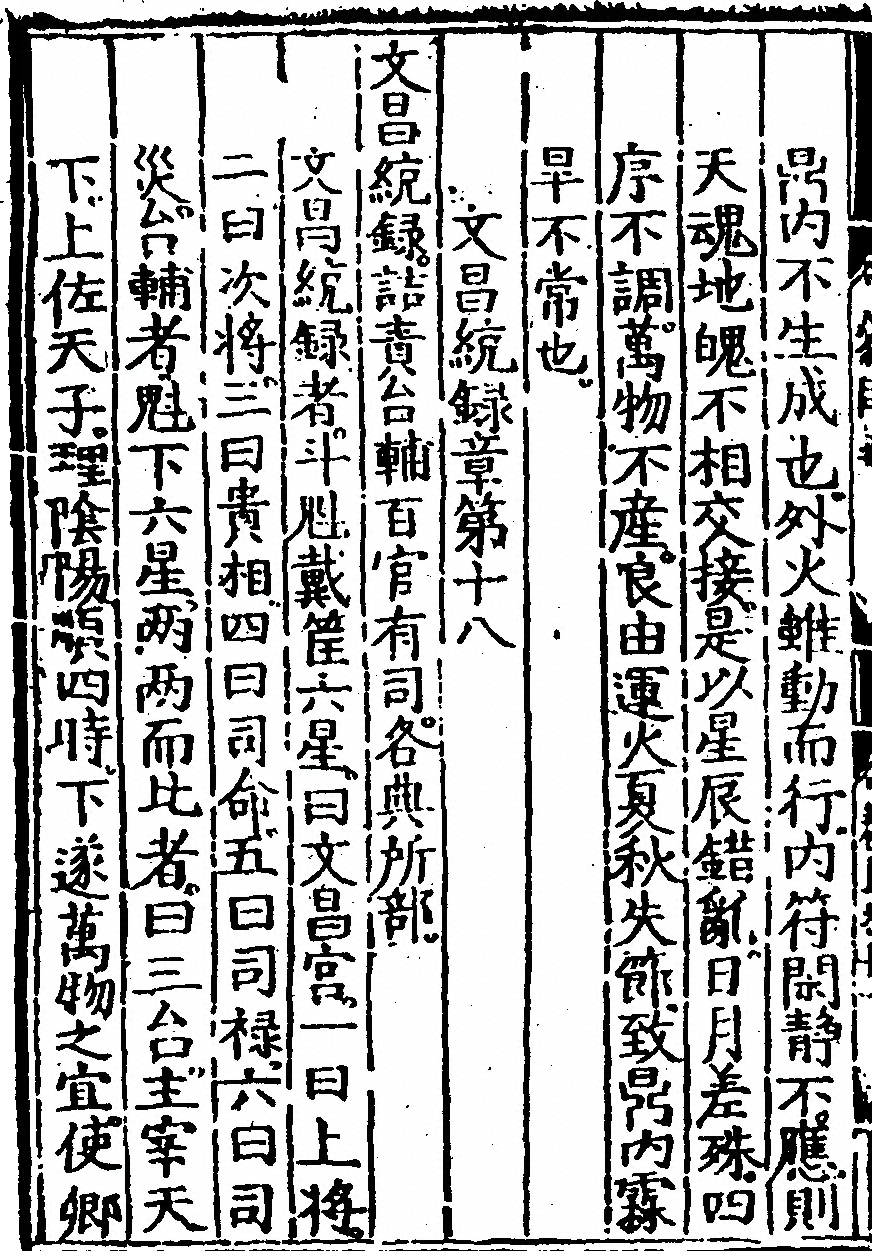 鼎内不生成也外火雖動而行内符閑静不應則
天魂地魄不相交接是以星辰錯亂日月差殊四
序不調萬物不産良由運火夏秋失節致鼎内霖
旱不常也
文昌統録章第十八
文昌統録詰責台輔百官有司各典所部
文昌統録者斗魁戴筐六星曰文昌宮一曰上將
二曰次將三曰貴相四曰司命五曰司禄六曰司
災台輔者魁下六星兩兩而比者曰三台主宰天
下上佐天子理陰陽順四時下遂萬物之宜使卿